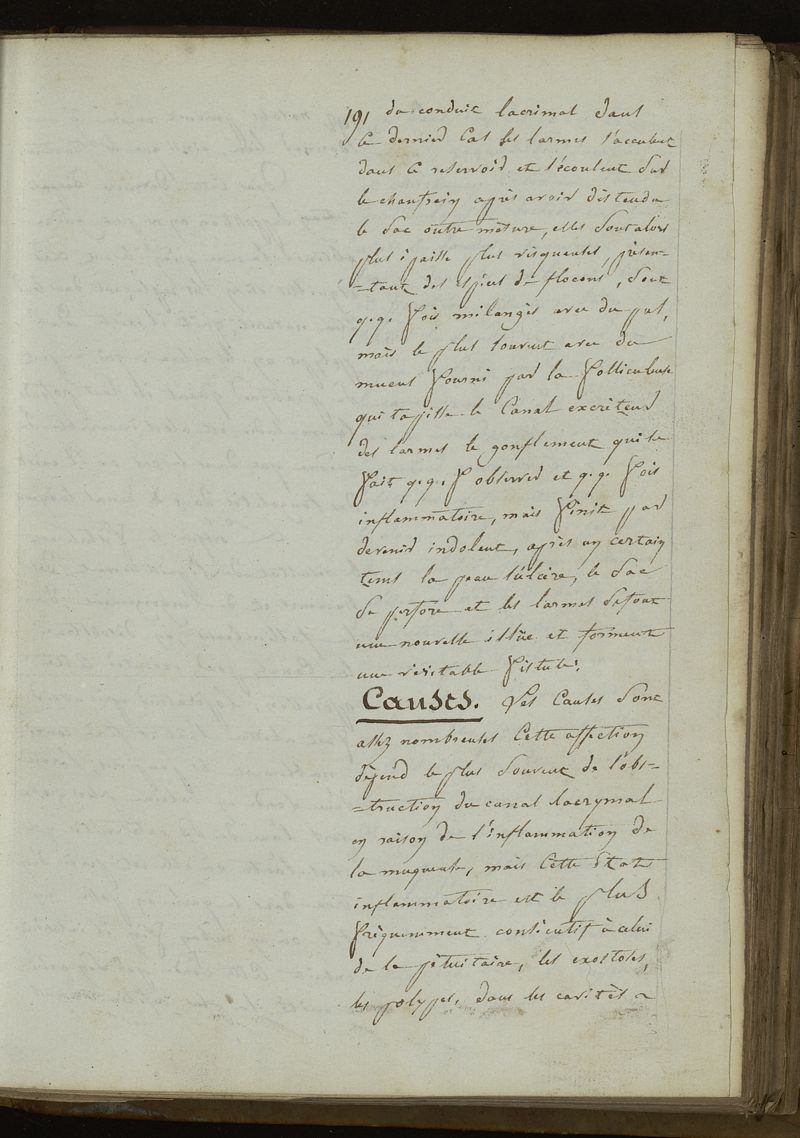 191 du conduit lacrimal dans
ce dernier cas les larmes s'accumulent
dans ce reservoir et s'écoulent sur
le chanfrein après avoir distendu
le sac outre mesure, elles sont alors
plus épaisse plus visqueuses, présen-
-tant des espices de flocons, sont
q.q. fois milangés avec du pus,
mais le plus souvent avec du
mucus fourni par la folliculeuse
qui tapisse le canal excréteur
des larmes le gonflement qui se
fait q.q. f observer et q.q. fois
inflammatoire, mais finit par
devenir indolent, après un certain
tems la peau s'ulcère, le sac
se perfore et les larmes se font
une nouvelle issüe et forment
une véritable fistule.
Causes. Les causes sont
assez nombreuses Cette affection
dépend le plus souvent de l'obs-
-truction du canal lacrymal
en raison de l'inflammation de
la muqueuse, mais cette état
inflammatoire est le plus
fréquemment consécutif à celui
de la pituitaire, les exostoses,
les polypes, dans les cavités